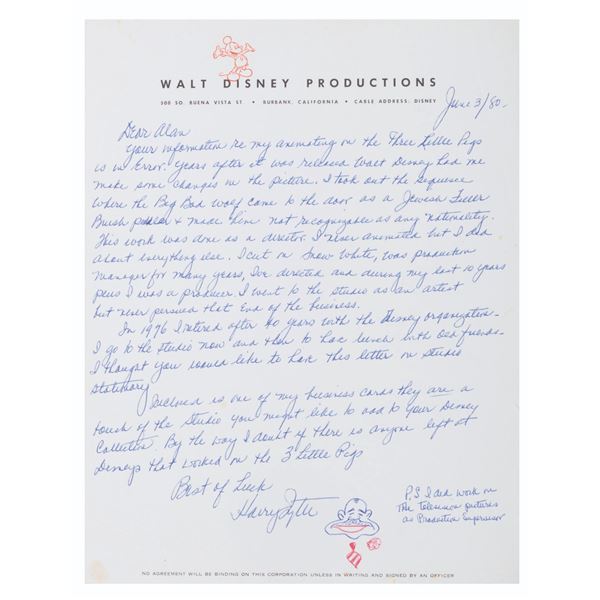 WALT DISNEY PRODUCTIONS
500 SO. BUENA VISTA ST • BURBANK, CALIFORNIA • CABLE ADDRESS: DISNEY
June 3/80-
Dear Alan
Your information re my animating on the Three Little Pigs
is in Error. Years after it was released Walt Disney had me
make some changes in the picture. I took out the sequence
where the Big Bad Wolf came to the door as a Jewish Fuller
Brush & made him not recognizable as any nationality.
This work was done as a director. I never animated but I did
about everything else. I cut on Snow White, was production
manager for many years, I've directed and during my last 10 years
plus I was a producer. I went to the studio as an artist
but never persued that end of the business.
In 1976 I retired after 40 years with the Disney organization-
I go to the studio now and then to have lunch with old friends-
I thought you would like to have this letter on Studio
Stationary
Inclosed is one of my business cards they are a
touch of the studio you might like to add to your Disney
Collection. By the way I doubt if there is anyone left at
Disneys that worked on the 3 Little Pigs
Best of Luck
Harry Tytle
P.S I did work on
The television pictures
as Production Supervisor
NO AGREEMENT WILL BE BINDING ON THIS CORPORATION UNLESS IN WRITING AND SIGNED BY AN OFFICER